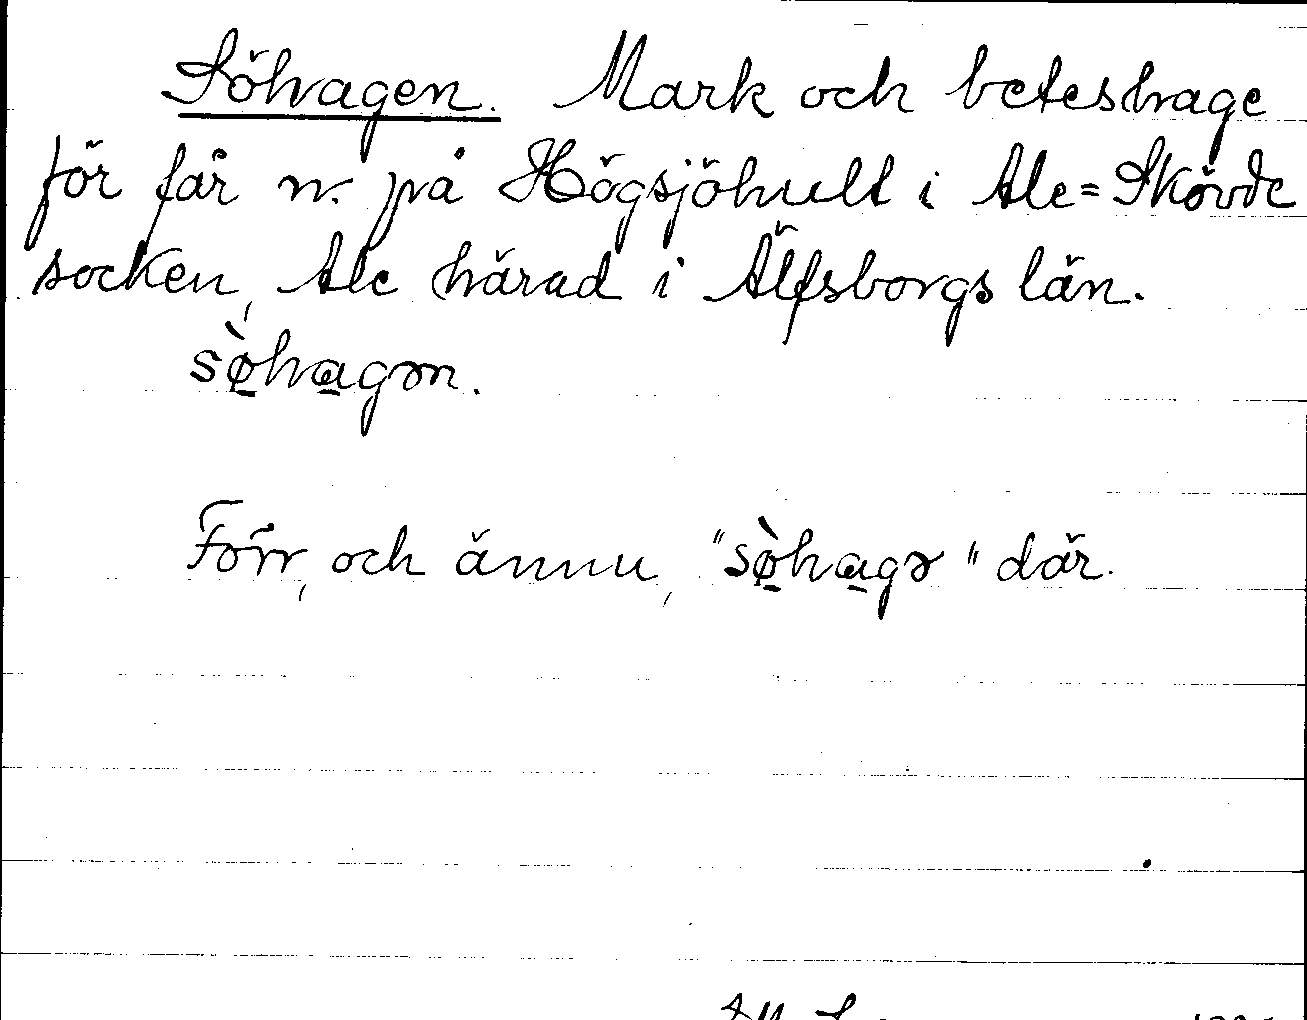 Söhagen. Mark och beteshage
för får n. på Högsjöhult i Ale=Skövde
socken, Ale härad i Älfsborgs län.
sø̀hagən.
Förr, och ännu, "sø̀hagə" där.